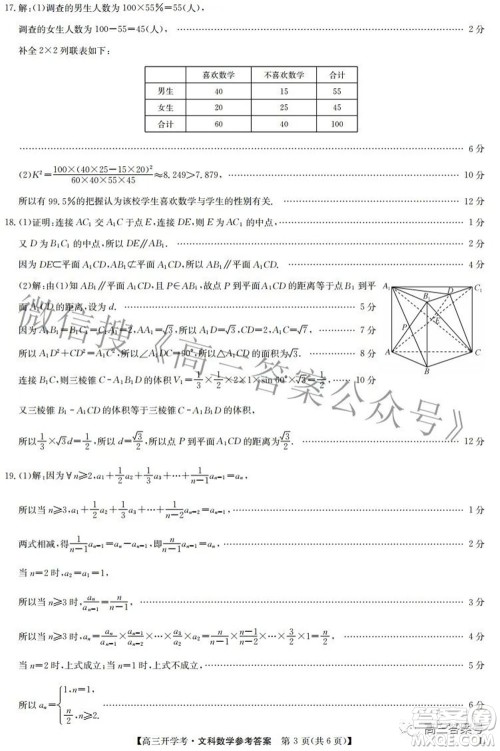 17.解:(1)调查的男生人数为100×55%=55(人),
调查的女生人数为100-55=45(人), 2分
补全2×2列联表如下:
喜欢数学 不喜欢数学 合计
男生 40 15 55
女生 20 25 45
合计 60 40 100
6分
(2)K²=100×(40×25-15×20)²/(60×40×55×45)≈8.249>7.879, 10分
所以有99.5%的把握认为该校学生喜欢数学与学生的性别有关. 12分
18.(1)证明:连接AC₁交A₁C于点E,连接DE,则E为AC₁的中点, 1分
又D为B₁C₁的中点,所以DE∥AB₁. 2分
因为DE⊂平面A₁CD,AB₁⊄平面A₁CD,所以AB₁∥平面A₁CD. 4分
(2)解:由(1)知AB₁∥平面A₁CD,且P∈AB₁,故点P到平面A₁CD的距离等于点B₁到平
面A₁CD的距离,设为d. 5分
因为A₁B₁=B₁C₁=C₁A₁=2,AA₁=√3,所以A₁D=√3,CD=2,A₁C=√7, 7分
所以A₁D²+CD²=A₁C²,所以∠A₁DC=90°,所以△A₁CD的面积为√3. 8分
连接B₁C,则三棱锥C-A₁B₁D的体积V₁=1/3×√3×1/2×2×1×sin 60°×√3=1/2, 10分
又三棱锥B₁-A₁CD的体积等于三棱锥C-A₁B₁D的体积,
所以1/3×√3d=1/2,所以d=√3/2,所以点P到平面A₁CD的距离为√3/2. 12分
A₁
B₁
C₁
D
E
P
A
B
C
19.(1)解:因为∀n≥2,a₁+1/2a₂+1/3a₃+…+1/(n-1)aₙ₋₁=aₙ,
所以当n≥3,a₁+1/2a₂+1/3a₃+…+1/(n-2)aₙ₋₂=aₙ₋₁, 1分
两式相减,得1/(n-1)aₙ₋₁=aₙ-aₙ₋₁,即n/(n-1)aₙ₋₁=aₙ. 2分
当n=2时,a₂=a₁=1,
所以当n≥3时,aₙ/aₙ₋₁=n/(n-1), 3分
所以当n≥3时,aₙ=aₙ/aₙ₋₁×aₙ₋₁/aₙ₋₂×…×a₃/a₂×a₂=n/(n-1)×(n-1)/(n-2)×…×3/2×1=n/2, 4分
当n=2时,上式成立;当n=1时,上式不成立,
所以aₙ={1,n=1, n/2,n≥2. 5分
【高三开学考·文科数学参考答案 第3页(共6页)】
微信搜《高三答案公众号》
高三答案号